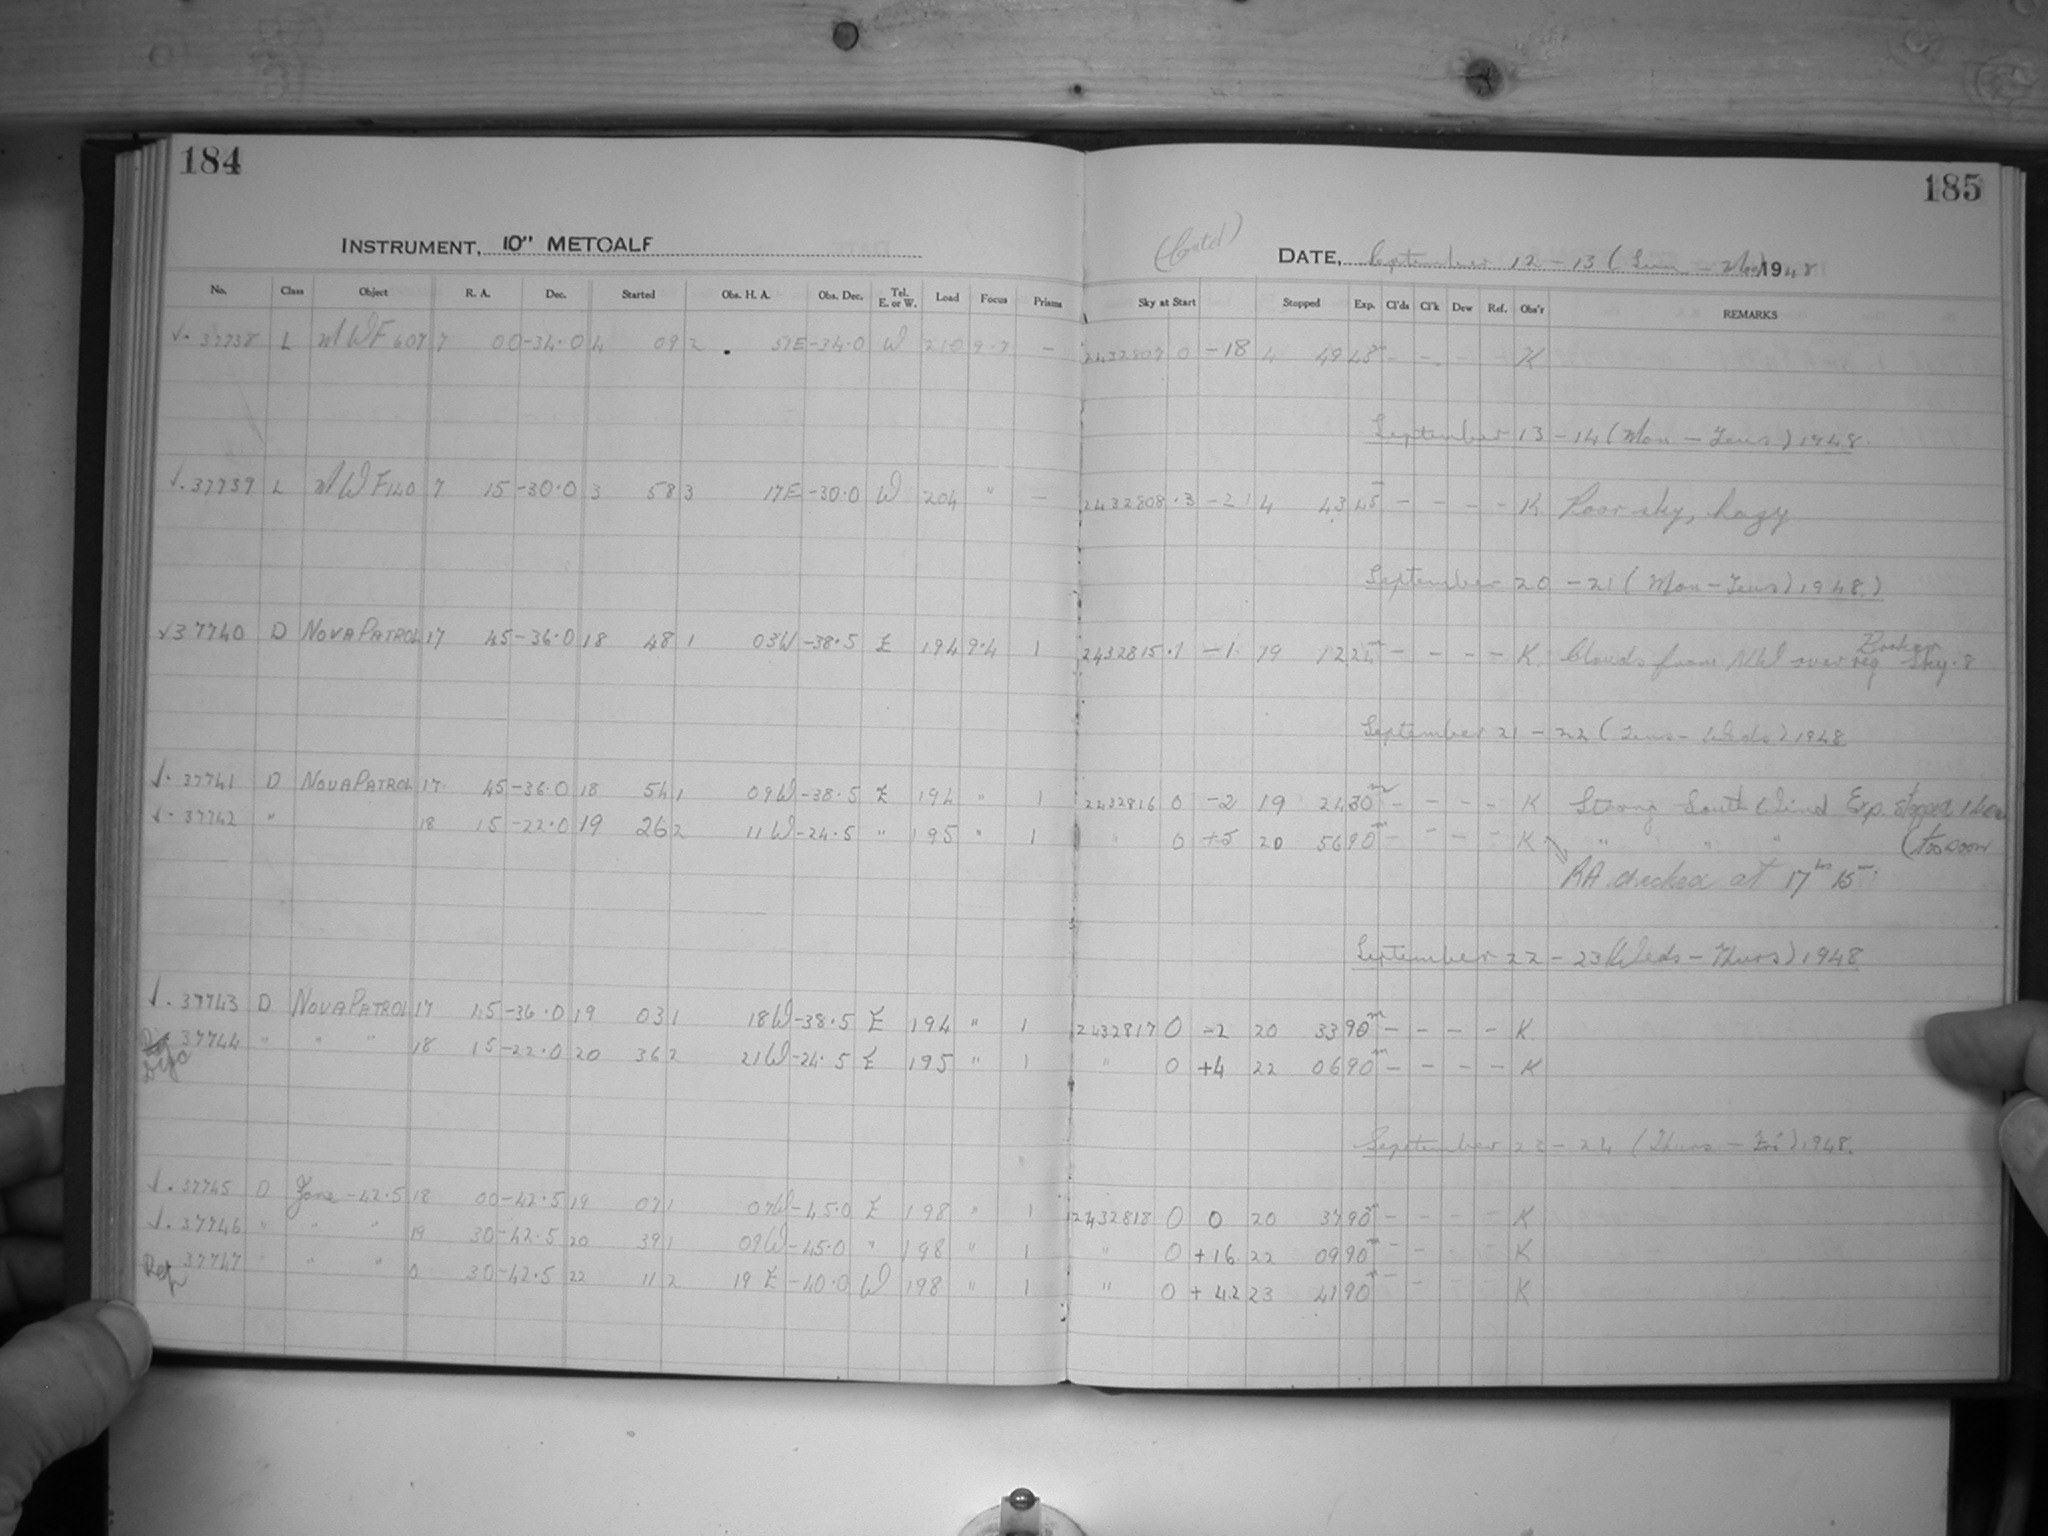 184
185
INSTRUMENT, 10" METCALF
(Contd) DATE, September 12 - 13 (Sun - Mon) 1948
No. Class Object R. A. Dec. Started Obs. H. A. Obs. Dec. Tel. E. or W. Load Focus Prisms Sky at Start Stopped Exp. Cl'ds Cl'k Dew Ref. Obs'r REMARKS
√. 37738 L MWF 607 7 00 -34.0 4 09 2 51E -34.0 W 210 9.7 - 2432807 0 -18 4 49 45m - - - - K
September 13 - 14 (Mon - Tues) 1948.
√. 37739 L MWF 140 7 15 -30.0 3 58 3 17E -30.0 W 204 " - 2432808 .3 -21 4 43 45m - - - - K Poor sky, hazy
September 20 - 21 (Mon - Tues) 1948.)
√ 37740 D NOVA PATROL 17 45 -36.0 18 48 1 03W -38.5 E 194 9.4 1 2432815 .1 -1 19 12 24m - - - - K. Clouds from NW over reg Broken Sky. 8
September 21 - 22 (Tues - Weds) 1948
√. 37741 D NOVA PATROL 17 45 -36.0 18 54 1 09W -38.5 E 194 " 1 2432816 0 -2 19 24 30m - - - - K Strong South Wind Exp. stopped 1 hour
√. 37742 " 18 15 -22.0 19 26 2 11W -24.5 " 195 " 1 " 0 +5 20 56 90m - - - - K " " " (too soon
RA checked at 17hrs 15m.
September 22 - 23 (Weds - Thurs) 1948
√. 37743 D NOVA PATROL 17 45 -36.0 19 03 1 18W -38.5 E 194 " 1 2432817 0 -2 20 33 90m - - - - K.
37744 " " " 18 15 -22.0 20 36 2 21W -24.5 E 195 " 1 " 0 +4 22 06 90m - - - - K
September 23 - 24 (Thurs - Fri) 1948.
√. 37745 D Zone -42.5 18 00 -42.5 19 07 1 07W -45.0 E 198 " 1 2432818 0 0 20 37 90m - - - - K
√. 37746 " " " 19 30 -42.5 20 39 1 09W -45.0 " 198 " 1 " 0 +16 22 09 90m - - - - K
Dep 37747 " " " 0 30 -42.5 22 11 2 19E -40.0 W 198 " 1 " 0 +42 23 41 90m - - - - K